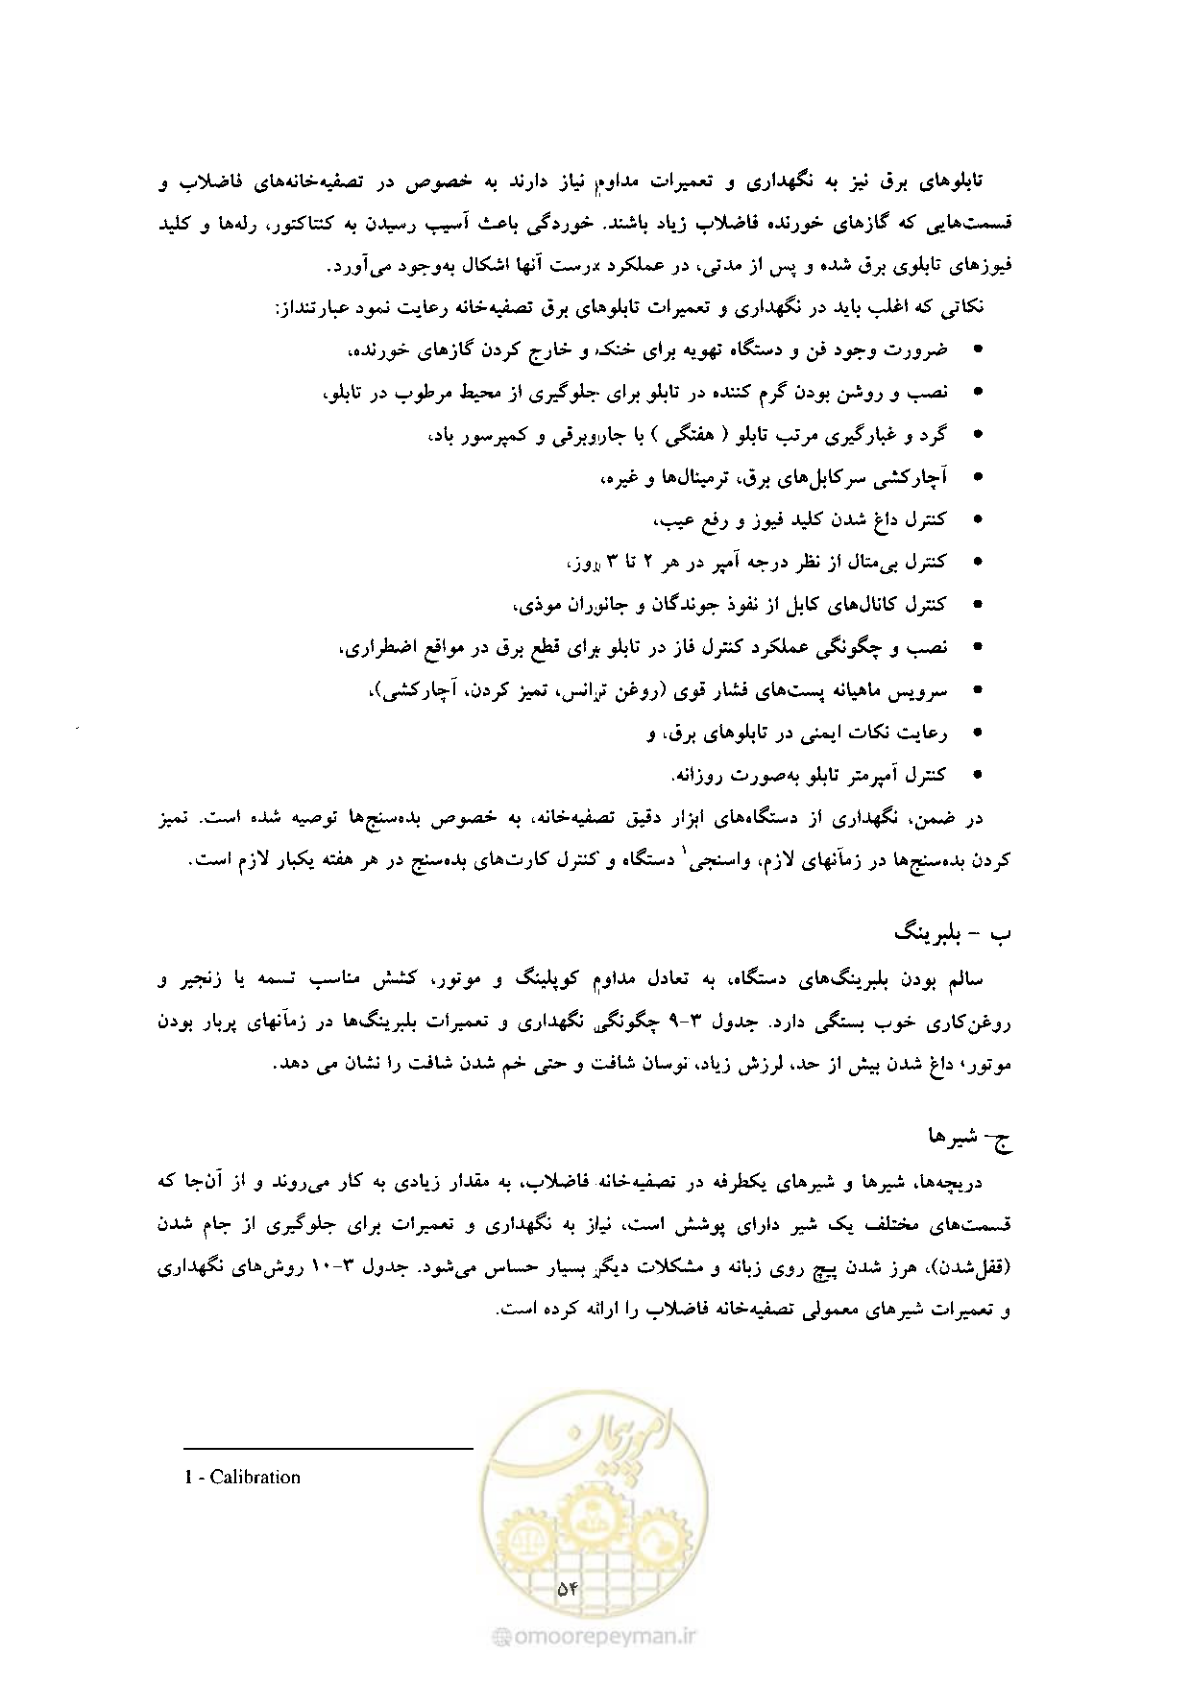 تابلوهای برق نیز به نگهداری و تعمیرات مداوم نیاز دارند به خصوص در تصفیه‌خانه‌های فاضلاب و
قسمت‌هایی که گازهای خورنده فاضلاب زیاد باشند. خوردگی باعث آسیب رسیدن به کنتاکتور، رله‌ها و کلید
فیوزهای تابلوی برق شده و پس از مدتی، در عملکرد درست آنها اشکال به‌وجود می‌آورد.
نکاتی که اغلب باید در نگهداری و تعمیرات تابلوهای برق تصفیه‌خانه رعایت نمود عبارتنداز:
● ضرورت وجود فن و دستگاه تهویه برای خنک و خارج کردن گازهای خورنده،
● نصب و روشن بودن گرم کننده در تابلو برای جلوگیری از محیط مرطوب در تابلو،
● گرد و غبارگیری مرتب تابلو ( هفتگی ) با جاروبرقی و کمپرسور باد،
● آچارکشی سرکابل‌های برق، ترمینال‌ها و غیره،
● کنترل داغ شدن کلید فیوز و رفع عیب،
● کنترل بی‌متال از نظر درجه آمپر در هر ۲ تا ۳ روز،
● کنترل کانال‌های کابل از نفوذ جوندگان و جانوران موذی،
● نصب و چگونگی عملکرد کنترل فاز در تابلو برای قطع برق در مواقع اضطراری،
● سرویس ماهیانه پست‌های فشار قوی (روغن ترانس، تمیز کردن، آچارکشی)،
● رعایت نکات ایمنی در تابلوهای برق، و
● کنترل آمپرمتر تابلو به‌صورت روزانه.
در ضمن، نگهداری از دستگاه‌های ابزار دقیق تصفیه‌خانه، به خصوص بده‌سنج‌ها توصیه شده است. تمیز
کردن بده‌سنج‌ها در زمآنهای لازم، واسنجی۱ دستگاه و کنترل کارت‌های بده‌سنج در هر هفته یکبار لازم است.
ب – بلبرینگ
سالم بودن بلبرینگ‌های دستگاه، به تعادل مداوم کوپلینگ و موتور، کشش مناسب تسمه یا زنجیر و
روغن‌کاری خوب بستگی دارد. جدول ۳-۹ چگونگی نگهداری و تعمیرات بلبرینگ‌ها در زمآنهای پربار بودن
موتور، داغ شدن بیش از حد، لرزش زیاد، نوسان شافت و حتی خم شدن شافت را نشان می دهد.
ج– شیرها
دریچه‌ها، شیرها و شیرهای یکطرفه در تصفیه‌خانه فاضلاب، به مقدار زیادی به کار می‌روند و از آن‌جا که
قسمت‌های مختلف یک شیر دارای پوشش است، نیاز به نگهداری و تعمیرات برای جلوگیری از جام شدن
(قفل‌شدن)، هرز شدن پیچ روی زبانه و مشکلات دیگر بسیار حساس می‌شود. جدول ۳-۱۰ روش‌های نگهداری
و تعمیرات شیرهای معمولی تصفیه‌خانه فاضلاب را ارائه کرده است.
1 - Calibration
امور پیمان
۵۴
@omoorepeyman.ir